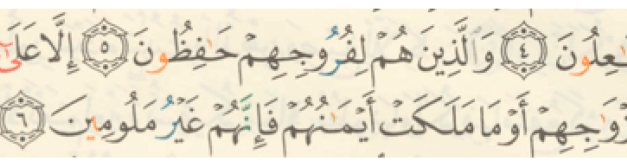 ـٰعِلُونَ ٤ وَالَّذِينَ هُمْ لِفُرُوجِهِمْ حَـٰفِظُونَ ٥ إِلَّا عَلَىٰٓ
زْوَٰجِهِمْ أَوْ مَا مَلَكَتْ أَيْمَـٰنُهُمْ فَإِنَّهُمْ غَيْرُ مَلُومِينَ ٦